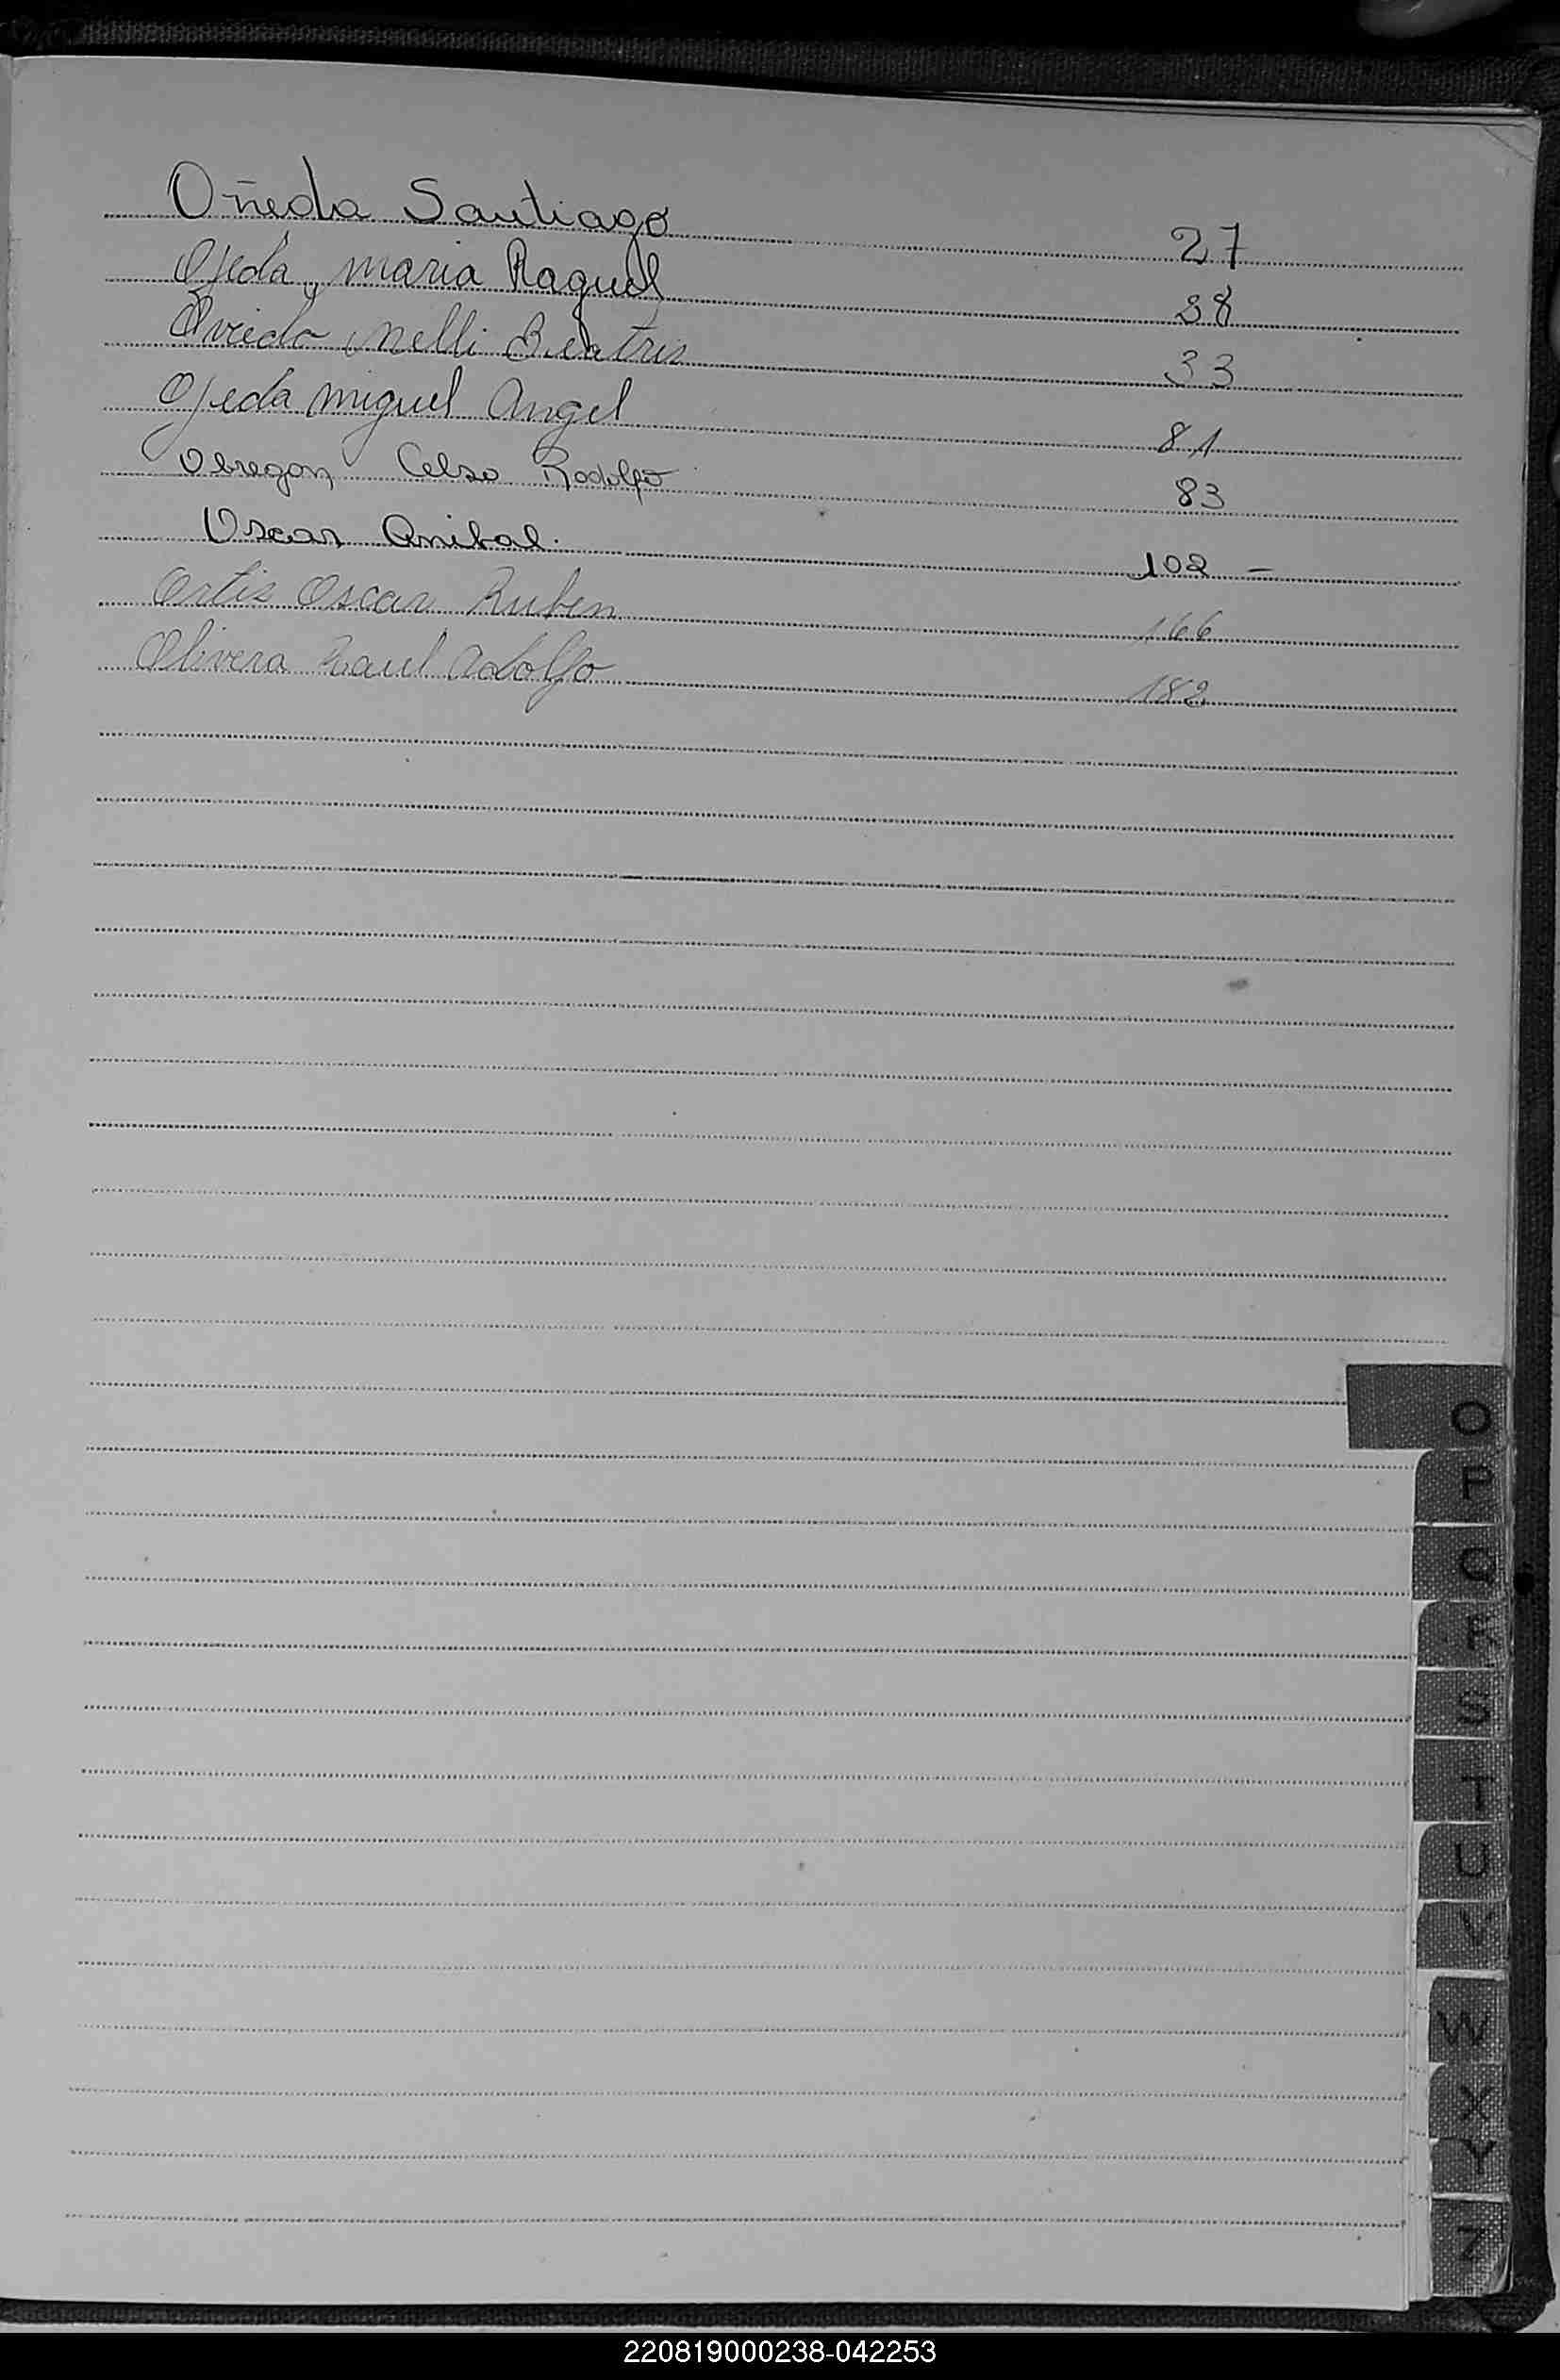 Oñeda Santiago 27
Ojeda, maria Raquel 38
Oviedo Nelli Beatris 33
Ojeda miguel Angel 81
Obregon Celso Rodolfo 83
Oscar Anibal. 102 -
Ortis Oscar Ruben 166
Olivera Raul Adolfo 182
O
P
Q
R
S
T
U
V
W
X
Y
Z
220819000238-042253